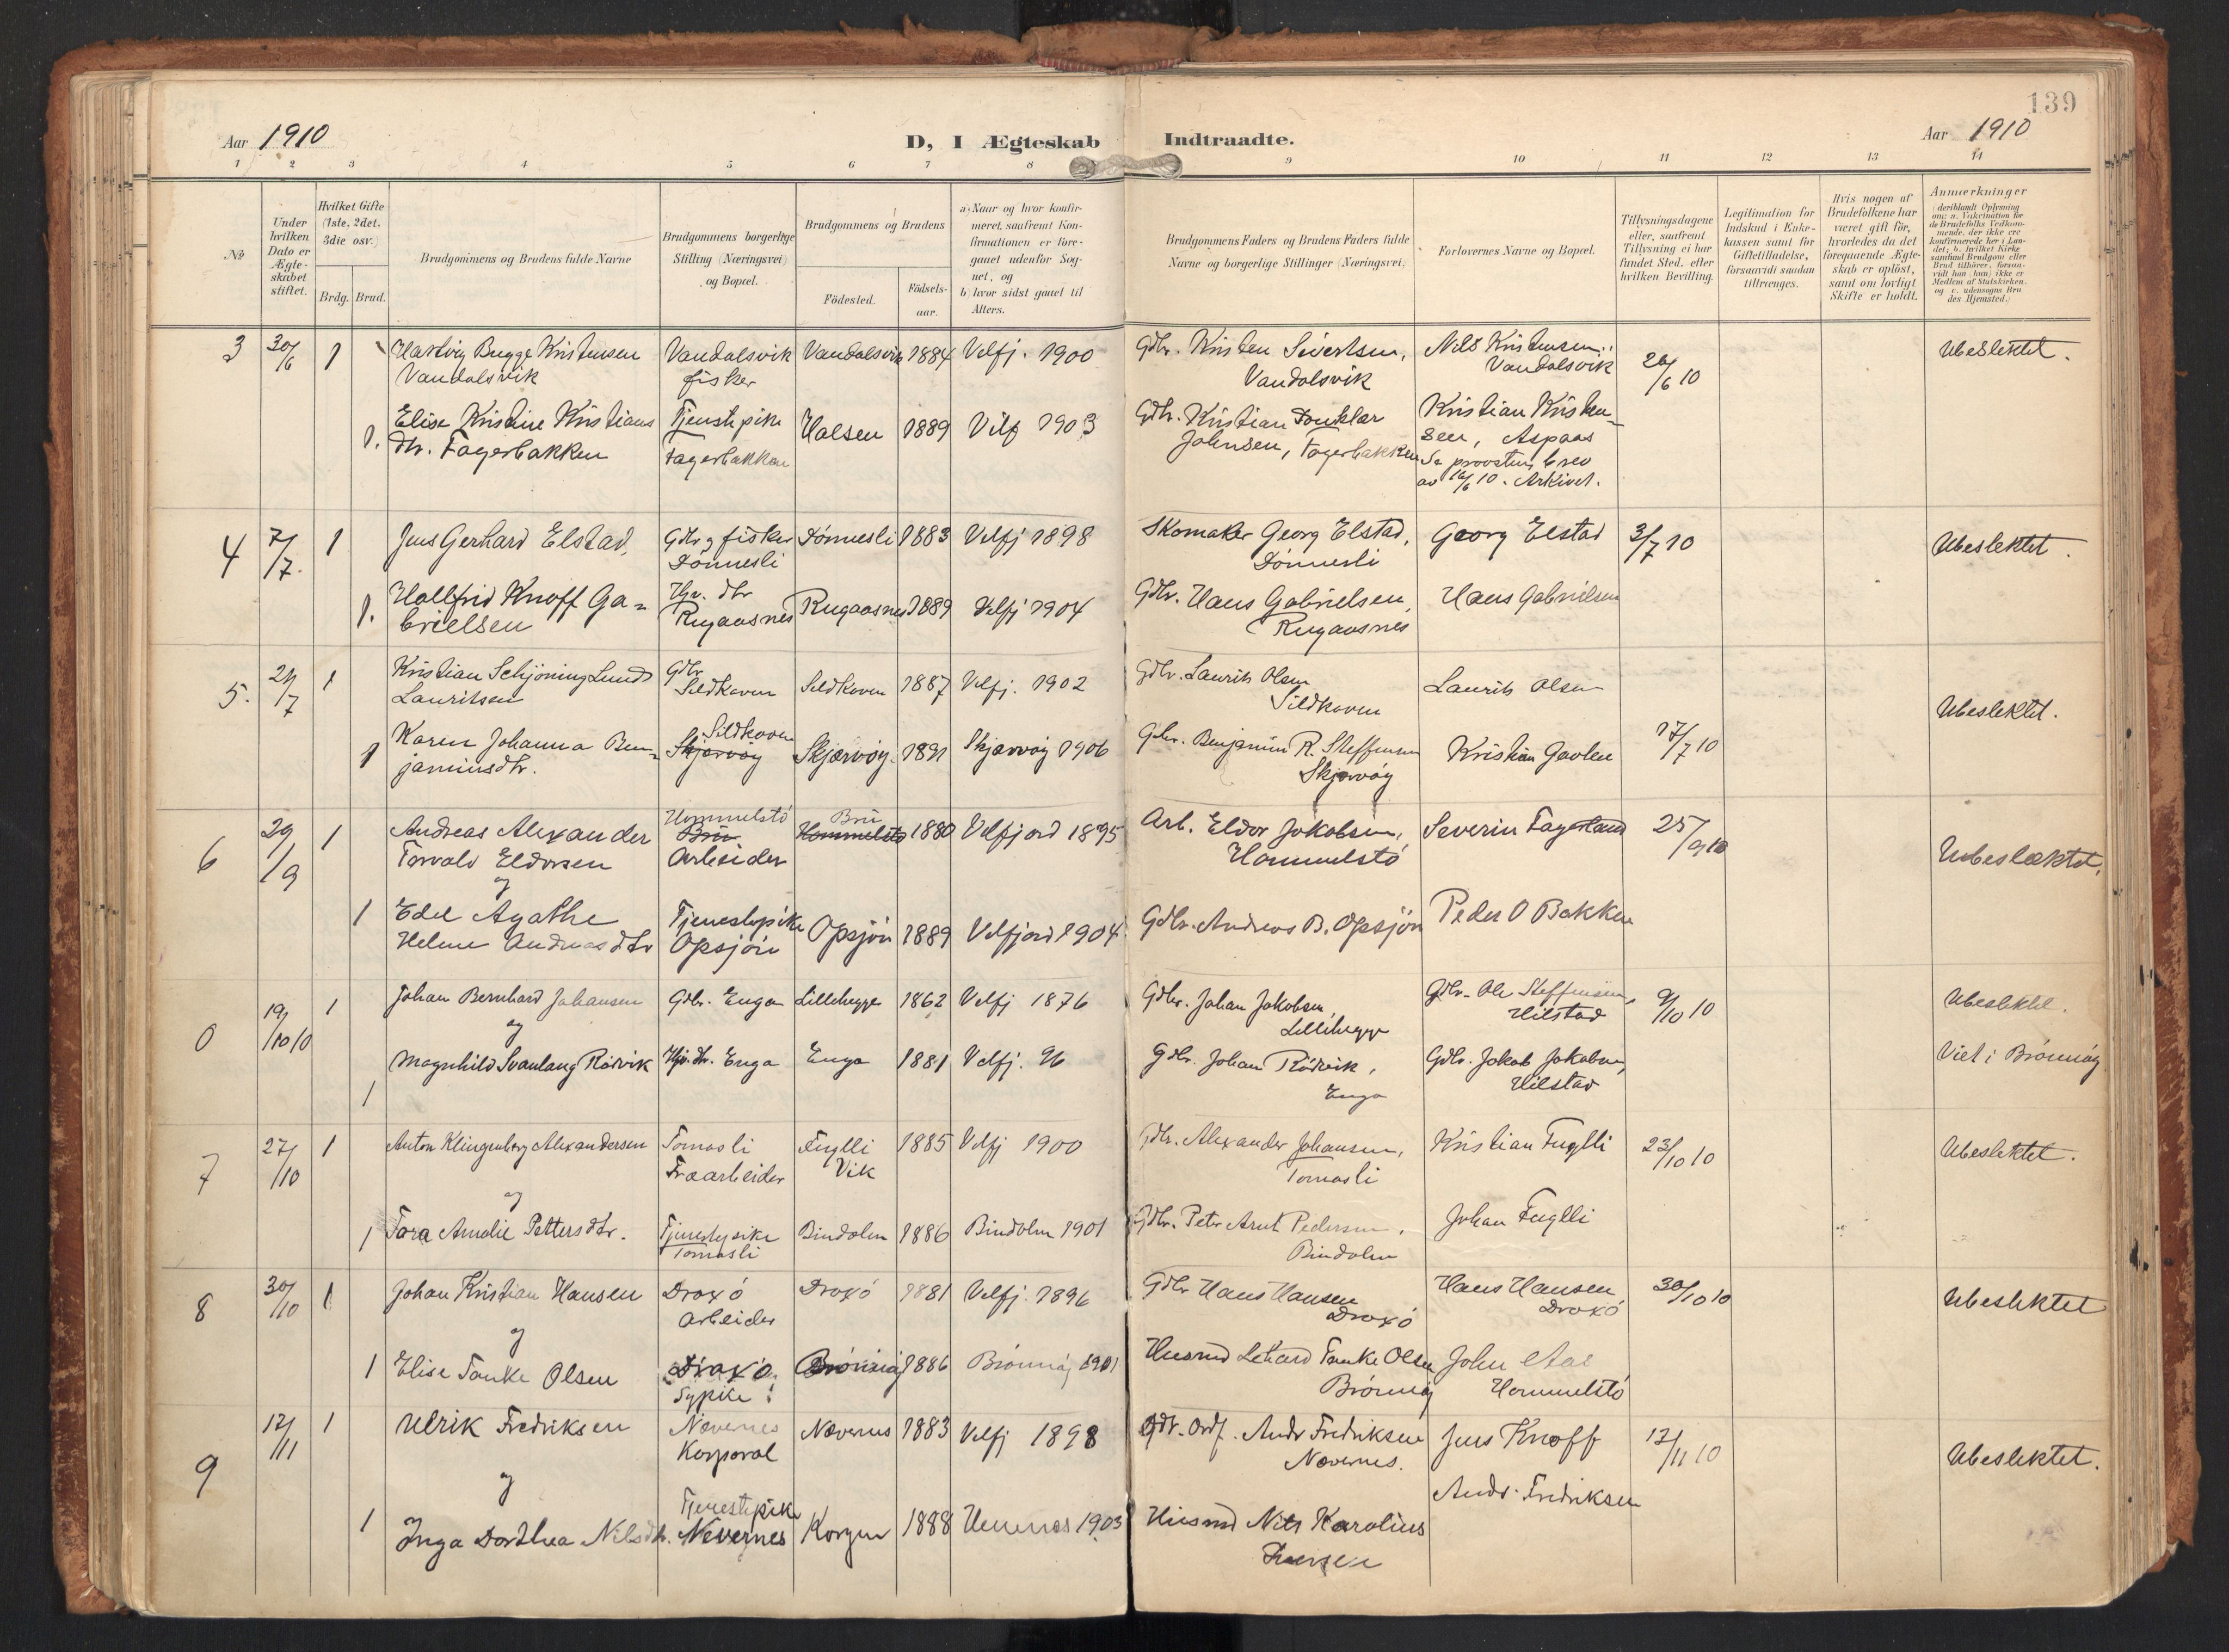 139
Aar 1910
D, I Ægteskab Indtraadte.
Aar 1910
1 2 3 4 5 6 7 8 9 10 11 12 13 14
№
Under hvilken Dato er Ægteskabet stiftet.
Hvilket Gifte (1ste, 2det, 3die osv.)
Brdg. Brud.
Brudgommens og Brudens fulde Navne
Brudgommens borgerlige Stilling (Næringsvei) og Bopæl.
Brudgommens og Brudens
Födested.
Födsels-aar.
a) Naar og hvor konfir-
meret, saafremt Kon-
firmationen er fore-
gaaet udenfor Sog-
net, og
b) hvor sidst gaaet til
Alters.
Brudgommens Faders og Brudens Faders fulde
Navne og borgerlige Stillinger (Næringsvei)
Forlovernes Navne og Bopæl.
Tillysningsdagene
eller, saafremt
Tillysning ei har
fundet Sted, efter
hvilken Bevilling.
Legitimation for
Indskud i Enke-
kassen samt for
Giftetilladelse,
forsaavidt saadan
tiltrænges.
Hvis nogen af
Brudefolkene har
været gift før,
hvorledes da det
foregaaende Ægte-
skab er oplöst,
samt om lovligt
Skifte er holdt.
Anmærkninger
(deriblandt Oplysning
om: a. Vakcination for
de Brudefolks Vedkom-
mende, der ikke ere
konfirmerede her i Lan-
det; b. hvilket Kirke
samfund Brudgom eller
Brud tilhører, forsaa-
vidt han (hun) ikke er
Medlem af Statskirken.
og c. udensogns Bru
des Hjemsted.)
3 30/6 1 Hartvig Bugge Kristensen Vandalsvik Vandalsvik 1884 Velfj. 1900 Gdbr. Kristen Sivertsen, Nils Kristensen 26/6 10 Ubeslektet.
Vandalsvik fisker Vandalsvik Vandalsvik
1. Elise Kristine Kristians Tjenstpike Halsen 1889 Velf 1903 Gdbr. Kristian Kristen-
dtr. Fagerbakken Fagerbakken Johnsen, Fagerbakken sen, Aspaas
Se provstens brev
av 16/6 10. Arkivet.
4 7/7. 1 Jens Gerhard Elstad, Gdbr og fisker Dönnesli 1883 Velfj 1898 Skomaker Georg Elstad, Georg Elstad 3/7 10 Ubeslektet.
Dönnesli Dönnesli
1. Hallfrid Knoff Ga- Hjv. dtr Rugaasnes 1889 Velfj 1904 Gdbr. Hans Gabrielsen, Hans Gabrielsen
brielsen Rugaasnes Rugaasnes
5. 21/7 1 Kristian Schjöning Lunds Gdbr Sildhaven 1887 Velfj. 1902 Gdbr. Laurits Olsen Laurits Olsen Ubeslektet.
Lauritsen Sildhaven Sildhaven
1 Karen Johanna Ben- Sildhaven Skjærvöy 1891 Skjærvöy 1906 Gdbr. Benjamin R. Steffensen Kristian Gaolen 17/7 10
jaminsdtr. Skjærvöy Skjærvöy
6 29/9 1 Andreas Alexander Hommelstö Bru 1880 Velfjord 1895 Arb. Eldor Jakobsen, Severin Fagerland 25/9 10 Ubeslæktet.
Torvald Eldorsen Bru Arbeider Hommelstö Hommelstö
og
1 Edel Agathe Tjenestepike Opsjön 1889 Velfjord 1904 Gdbr. Andreas B. Opsjön Peder O Bakken
Helene Andreasdtr Opsjön
0 19/10 10 1 Johan Bernhard Johansen Gdbr. Enga Lillehegge 1862 Velfj 1876 Gdbr. Johan Jakobsen, Gdbr. Ole Steffensen, 9/10 10 Ubeslektet.
og Lillehegge Hilstad
1 Magnhild Svanlaug Rödvik Hjv. dtr. Enga Enga 1881 Velfj. 96 Gdbr. Johan Rödvik, Gdbr. Jakob Jakobsen, Viet i Brönnöy
Enga Hilstad
7 27/10 1 Anton Klingenberg Alexandersen Tomasli Fuglli 1885 Velfj 1900 Gdbr. Alexander Johansen, Kristian Fuglli 23/10 10 Ubeslektet.
Fraarbeider Vik Tomasli
og
1 Tora Amalie Pettersdtr. Tjenestepike Bindalen 1886 Bindalen 1901 Gdbr. Peter Arnt Pedersen, Johan Fuglli
Tomasli Bindalen
8 30/10 1 Johan Kristian Hansen Draxö Draxö 1881 Velfj. 1896 Gdbr Hans Hansen Hans Hansen 30/10 10 Ubeslektet
Arbeider Draxö Draxö
og
1 Elise Tanke Olsen Draxö. Brönnöy 1886 Brönnöy 1901 Husmd Lehard Tanke Olsen John Aas
Sypike Brönnöy Hommelstö
9 12/11 1 Ulrik Fredriksen Nævernes Nævernes 1883 Velfj 1898 Gdr. Ordf. Andr Fredriksen Jens Knoff 12/11 10 Ubeslektet.
Korporal Nævernes.
og Andr. Fredriksen
1 Inga Dorthea Nilsdtr. Tjenestepike Nevernes Korgen 1888 Hemnes 1903 Husmd Nils Karolius
Iversen